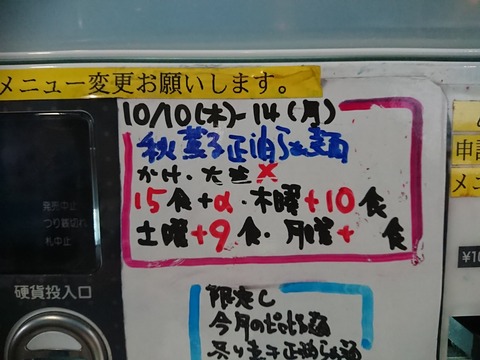 メニュー変更お願いします。
10/10(木)-14(月)
秋薫る正油らぁ麺
かけ・大盛×
15食+α・木曜+10食
土曜+9食・月曜+ 食
発売中止
つり銭切れ
札中止
硬貨投入口
限定C
今月の
正油らぁ麺
申請
メニ
¥10